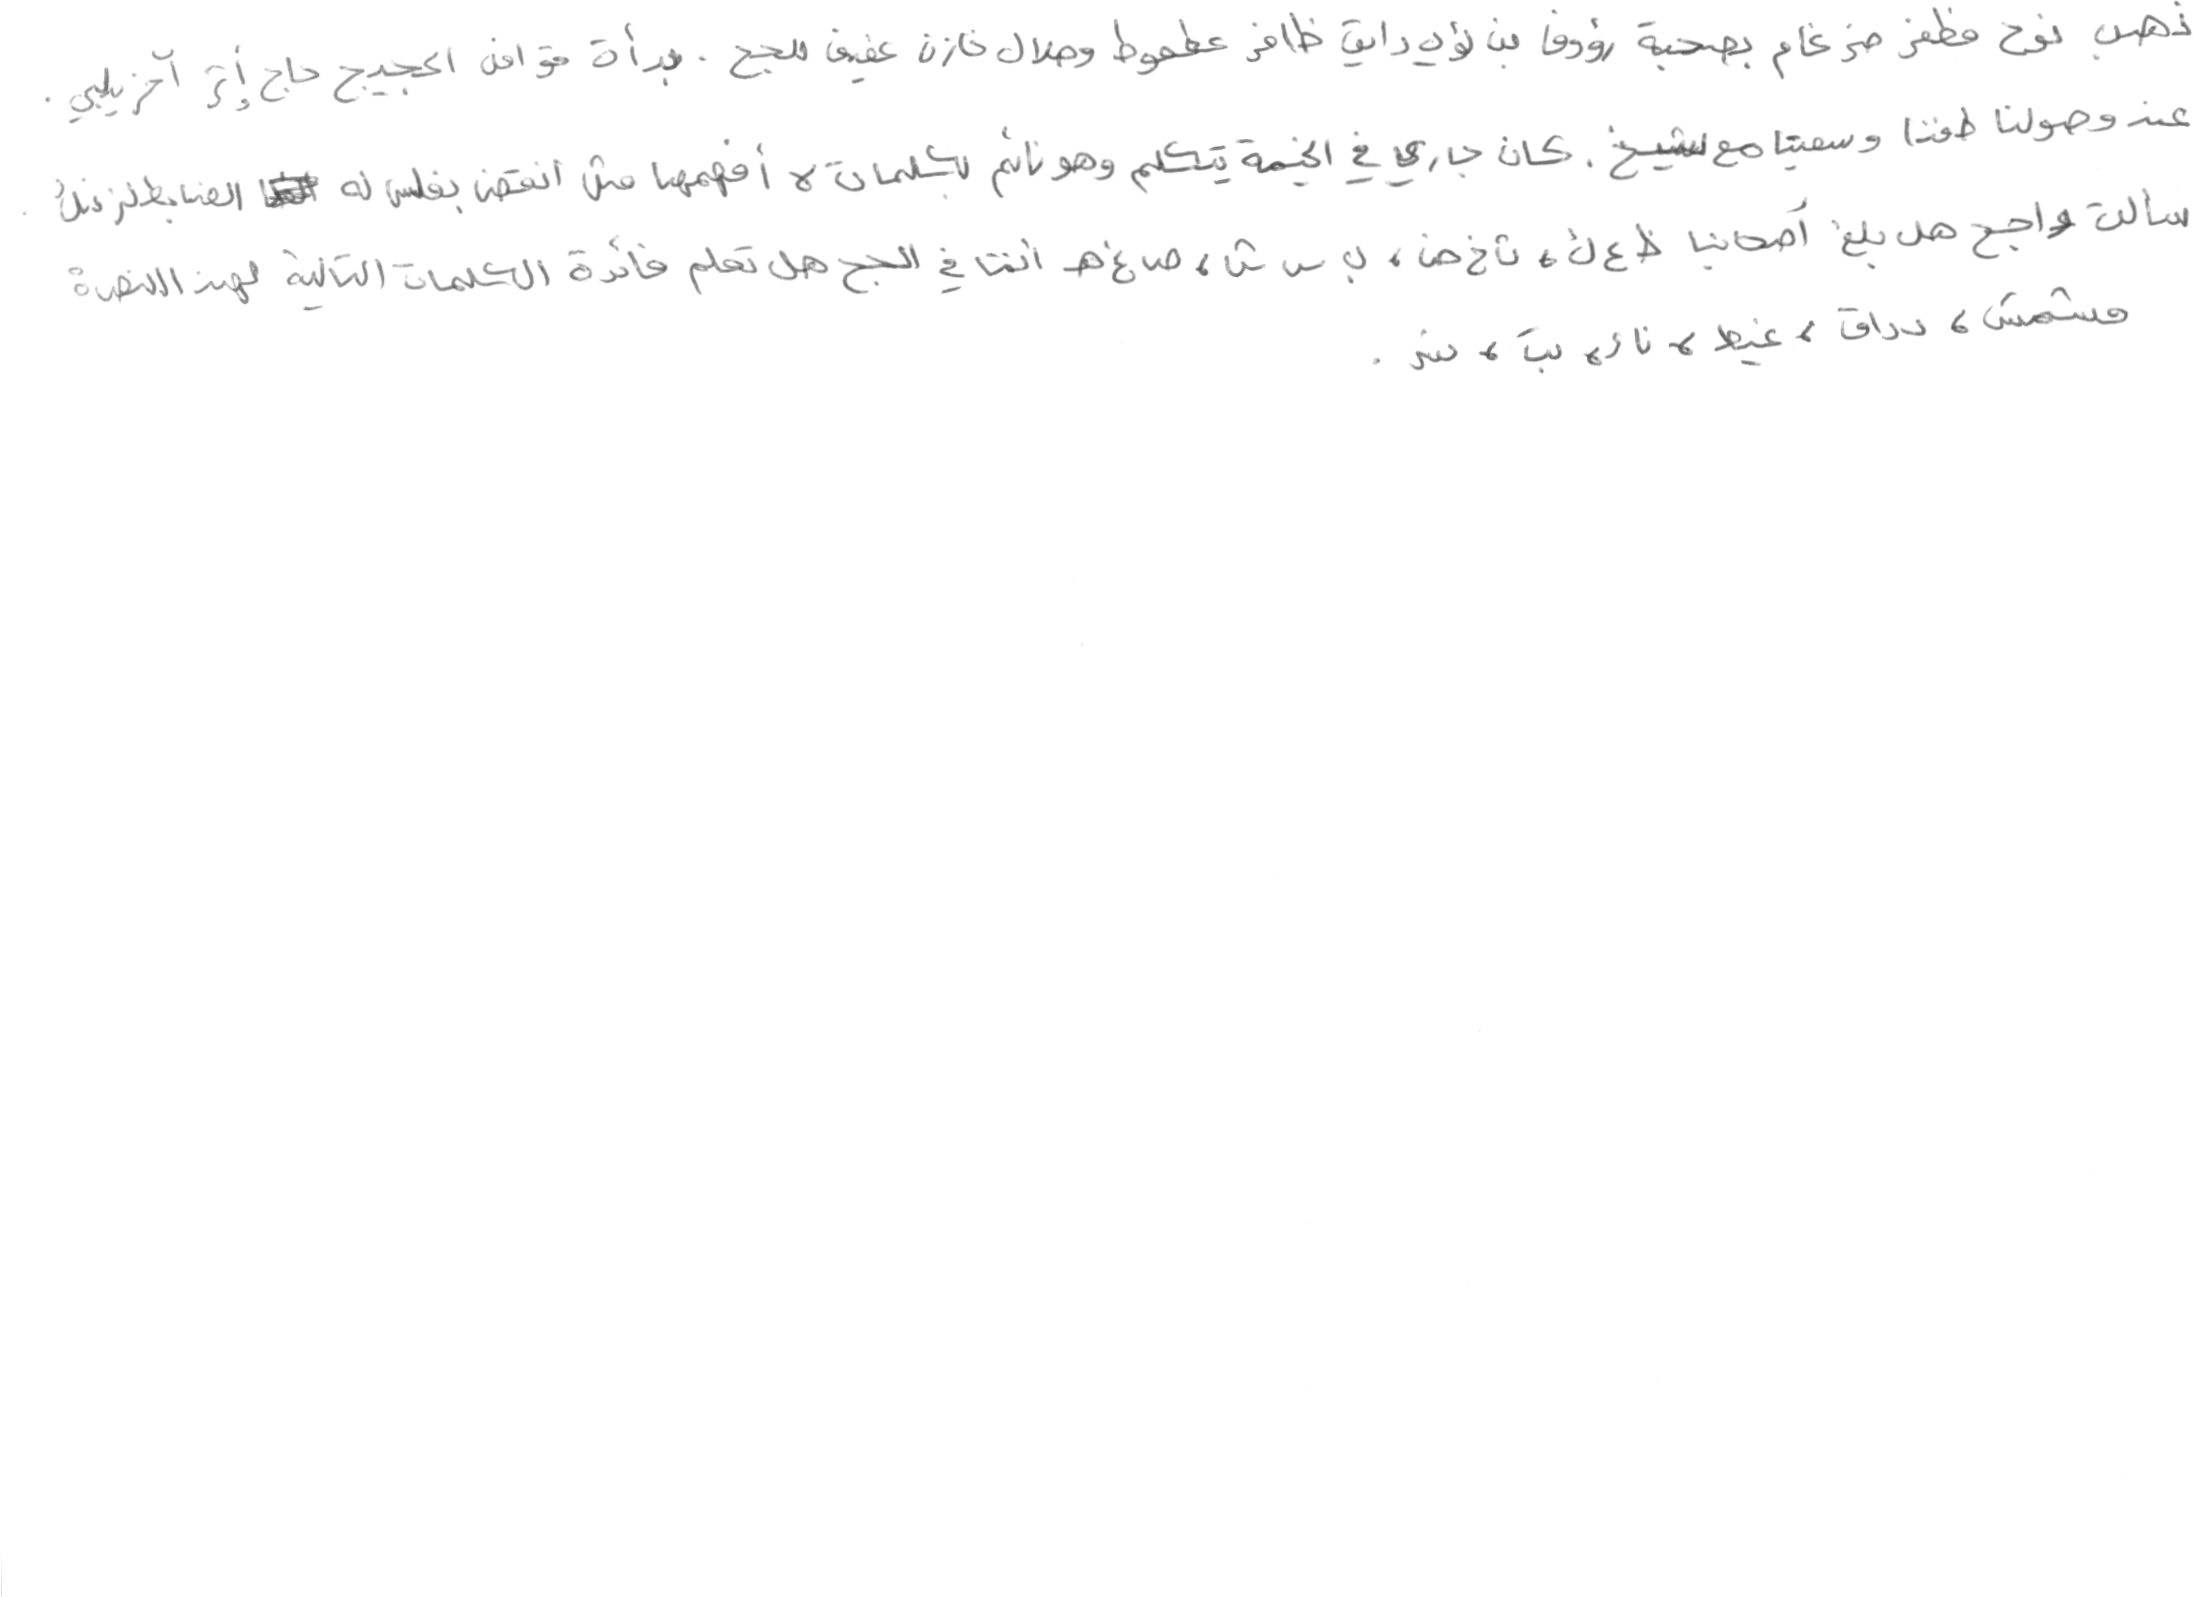 ذهب نوح مظفر ضرغام بصحبة رؤوف بن لؤي رايق ظافر عطعوط وهلال خازن عفيف للحج . بدأت قوافل الحجيج حاج إثر آخر يلبي .
عند وصولنا طفنا وسعينا مع الشيخ . كان جاري في الخيمة يتكلم وهو نائم بكلمات لا أفهمها مثل انغض بغلس له الضابط
سألت واجح هل بلغ أصحابنا ظ ع ك ، ث خ ض ، ب س ش ، ص غ هـ انتا في الحج هل تعلم فائدة الكلمات التالية لهذ
مشمش ، دراق ، غيط ،